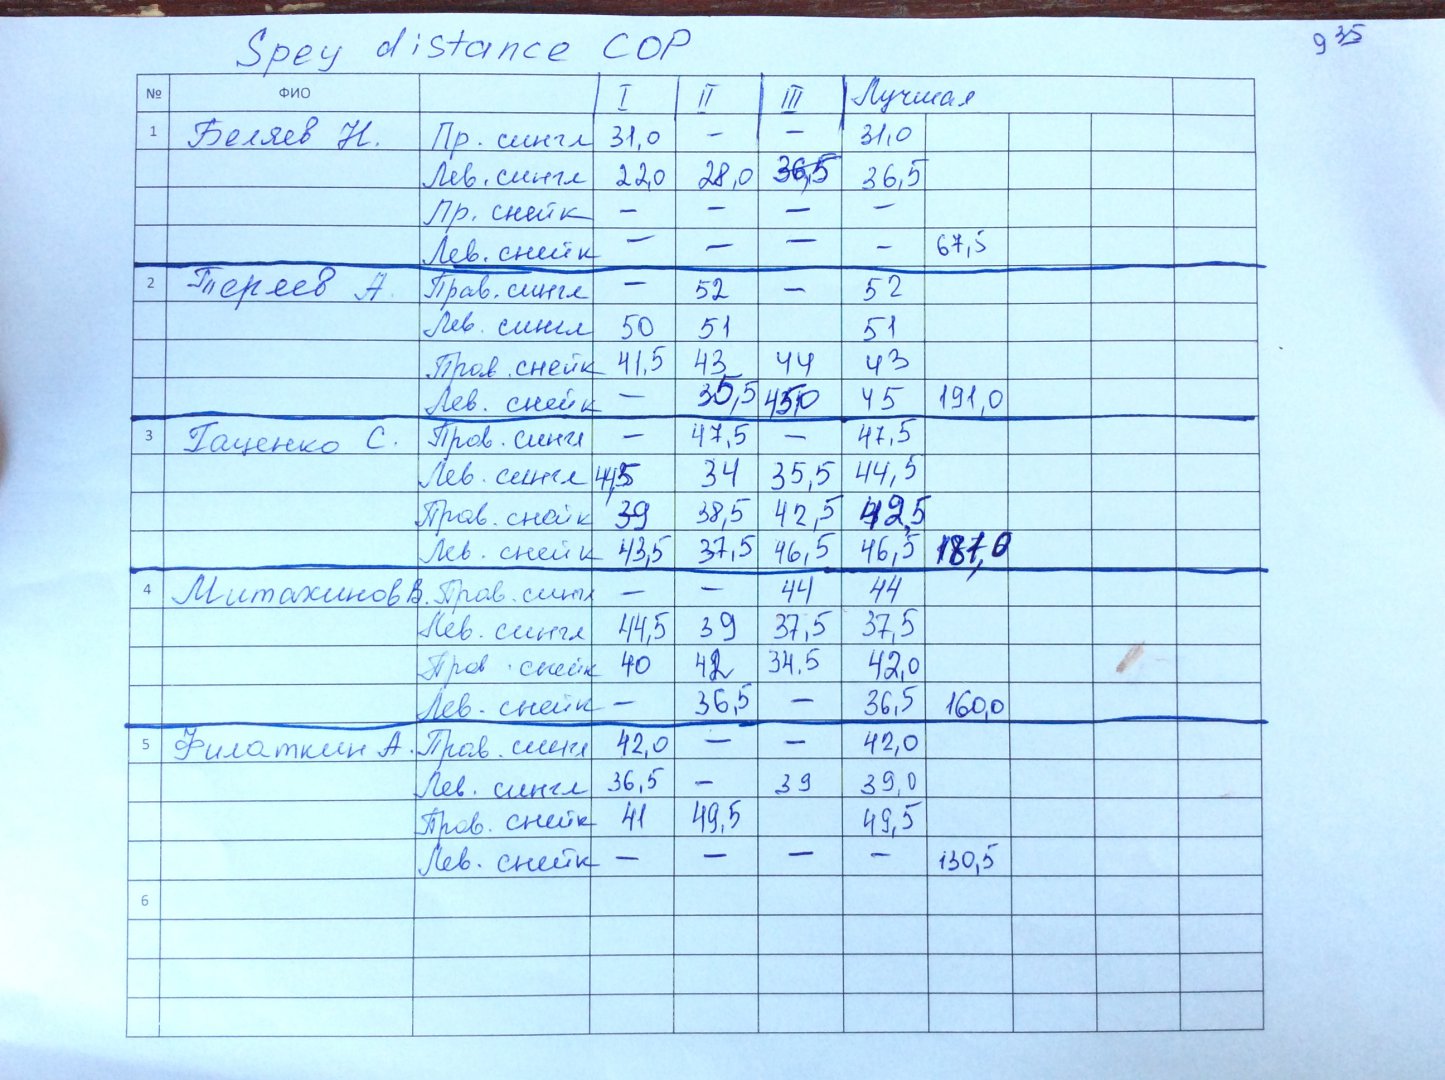 Spey distance COP
9 35
№ ФИО I II III Лучшая
1 Беляев Н. Пр. сингл 31,0 — — 31,0
Лев. сингл 22,0 28,0 36,5 36,5
Пр. снейк — — — —
Лев. снейк — — — — 67,5
2 Теряев А. Прав. сингл — 52 — 52
Лев. сингл 50 51 51
Прав. снейк 41,5 43 44 43
Лев. снейк — 35,5 45,0 45 191,0
3 Гаценко С. Прав. сингл — 47,5 — 47,5
Лев. сингл 44,5 34 35,5 44,5
Прав. снейк 39 38,5 42,5 42,5
Лев. снейк 43,5 37,5 46,5 46,5 181,0
4 Митахинов В. Прав. сингл — — 44 44
Лев. сингл 44,5 39 37,5 37,5
Прав. снейк 40 42 34,5 42,0
Лев. снейк — 36,5 — 36,5 160,0
5 Филаткин А. Прав. сингл 42,0 — — 42,0
Лев. сингл 36,5 — 39 39,0
Прав. снейк 41 49,5 49,5
Лев. снейк — — — — 130,5
6